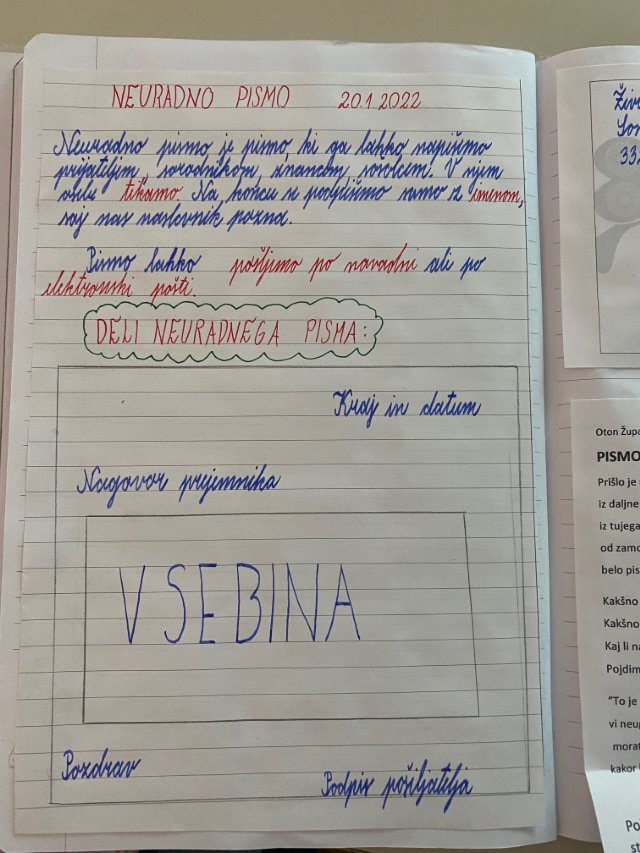 NEURADNO PISMO 20.1.2022
Neuradno pismo je pismo, ki ga lahko napišemo
prijateljem, sorodnikom, znancem, sošolcem. V njem
osebe tikamo. Na koncu se podpišemo samo z imenom,
saj nas naslovnik pozna.
Pismo lahko pošljemo po navadni ali po
elektronski pošti.
DELI NEURADNEGA PISMA:
Kraj in datum
Nagovor prejemnika
VSEBINA
Pozdrav
Podpis pošiljatelja
33
Oton Župa
PISMO
Prišlo je
iz daljne
iz tujega
od zamo
belo pis
Kakšno
Kakšno
Kaj li na
Pojdim
"To je
vi neup
morat
kakor
Po
st